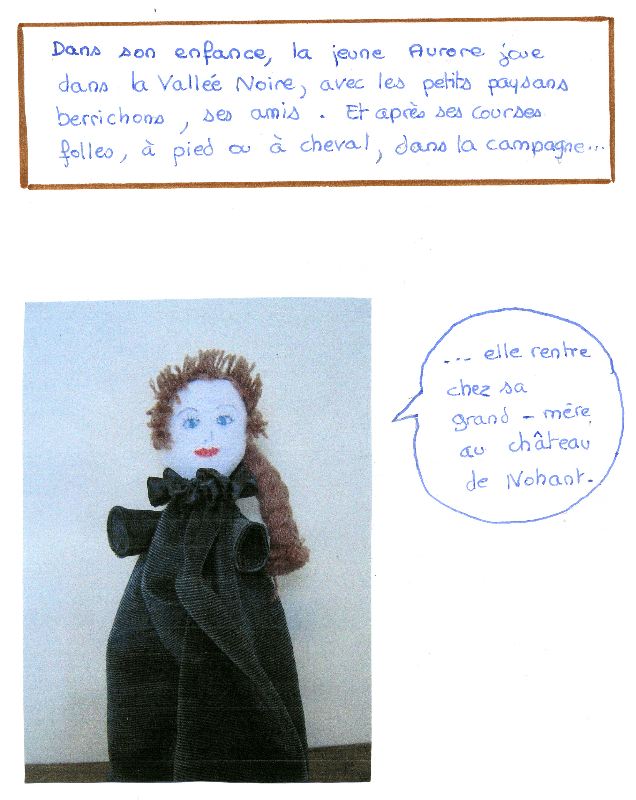 Dans son enfance, la jeune Aurore joue
dans la Vallée Noire, avec les petits paysans
berrichons, ses amis. Et après ses courses
folles, à pied ou à cheval, dans la campagne...
... elle rentre
chez sa
grand-mère
au château
de Nohant.